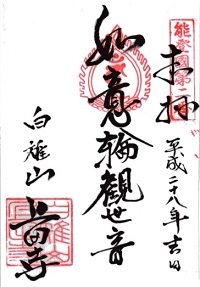 奉拝
平成二十八年吉日
如意輪觀世音
白雉山
上田寺
能登國第二